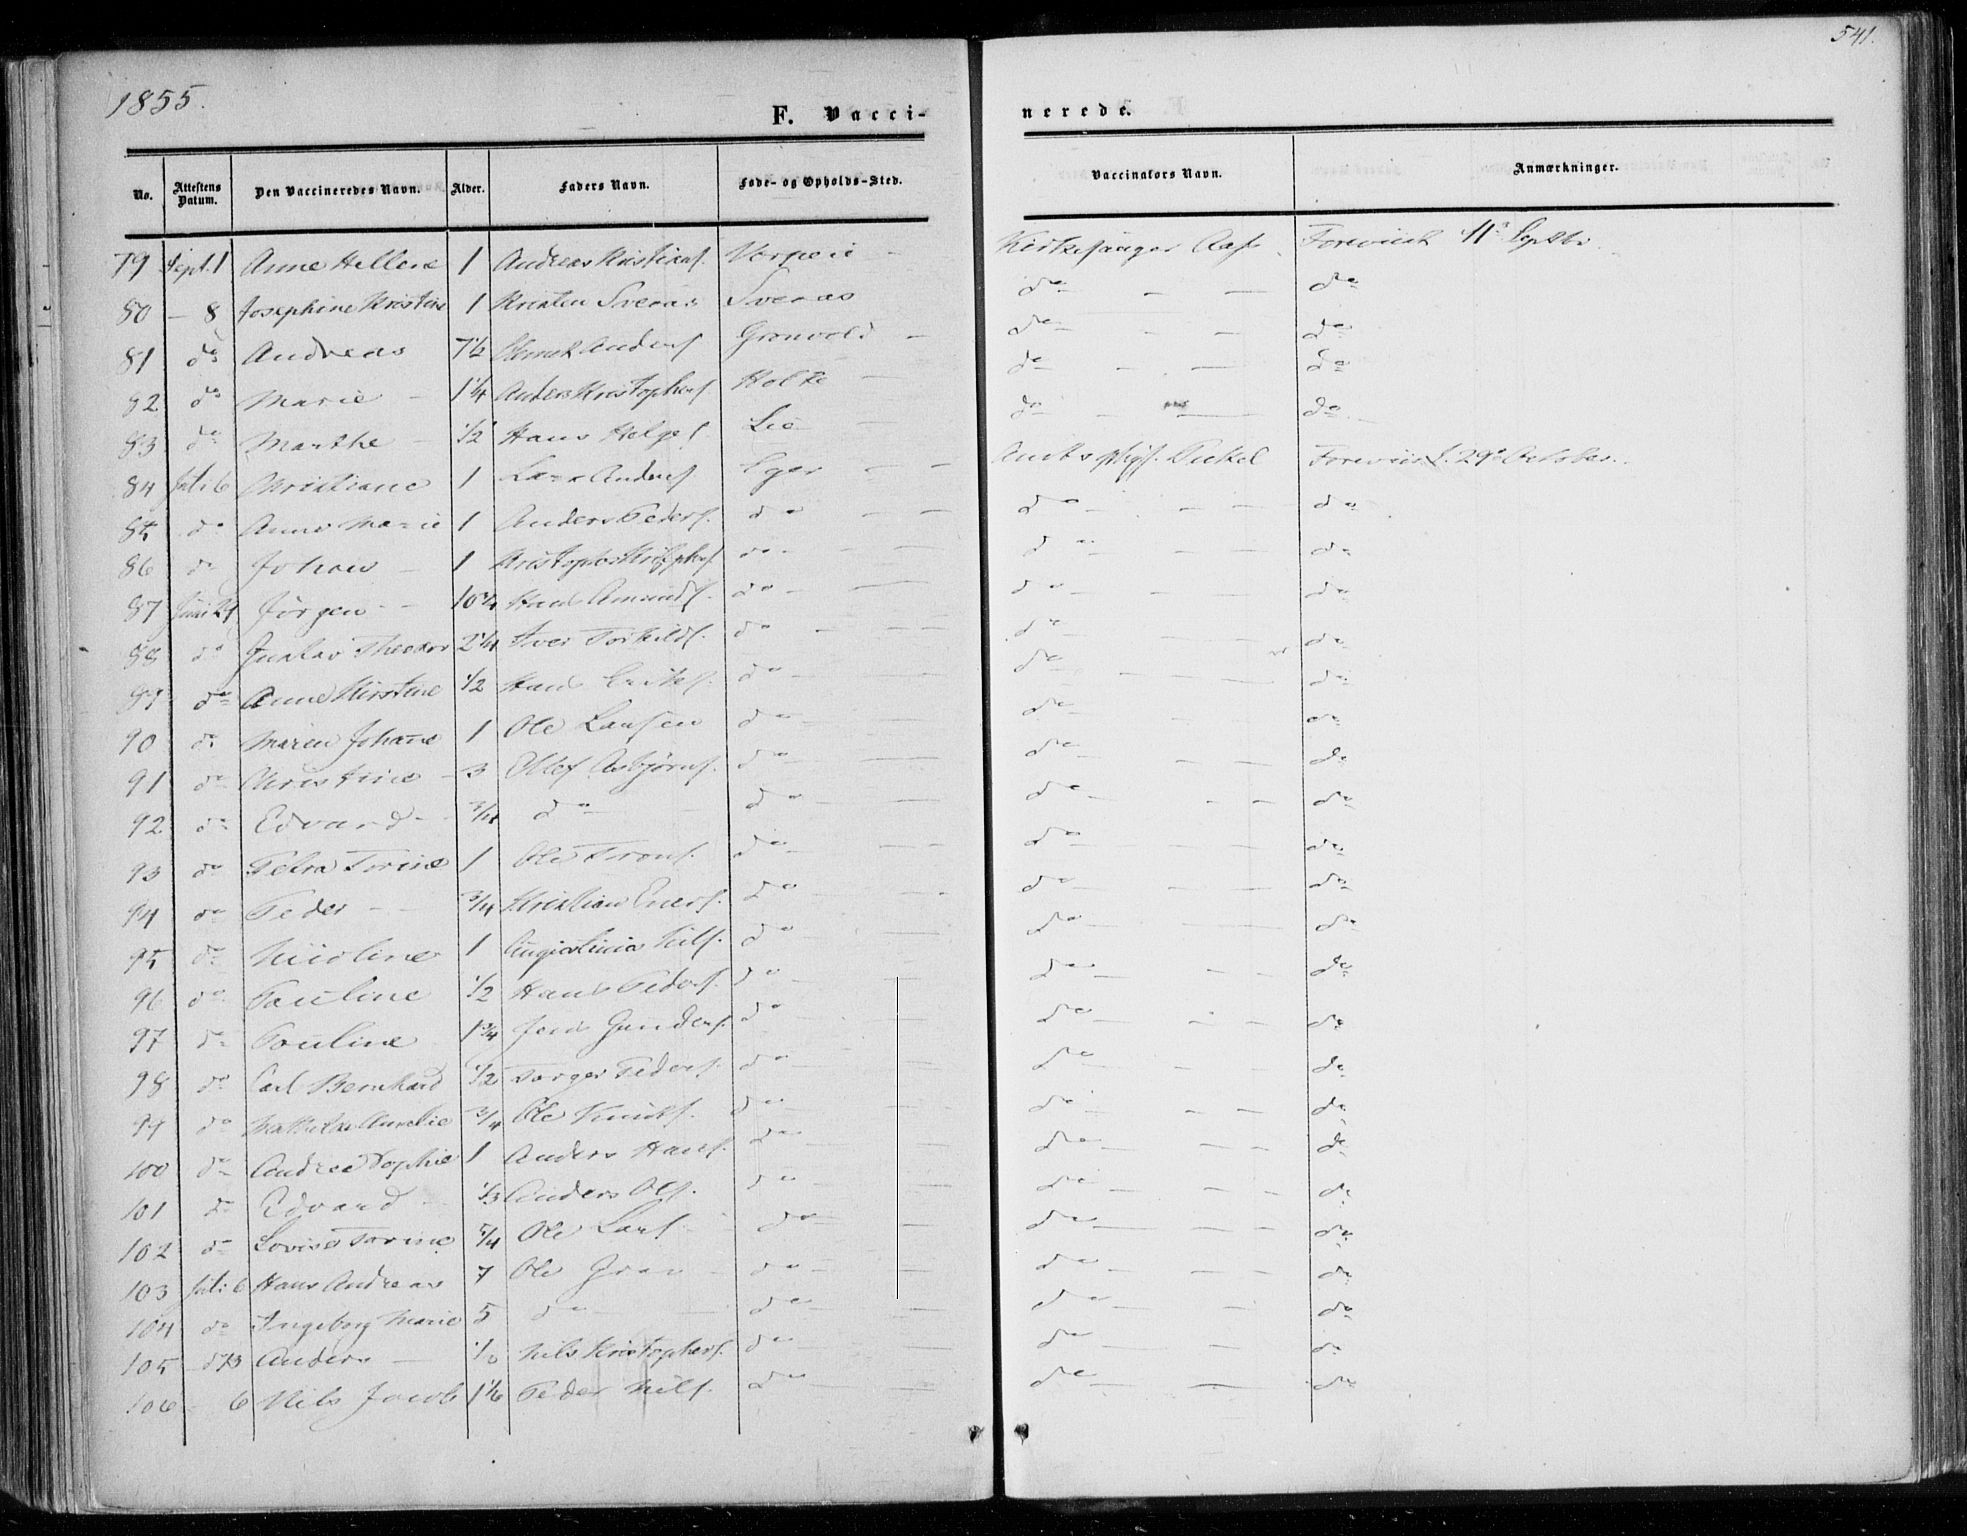 1855.
541.
F. Vacci-
nerede.
No. Attestens Datum. Den Vaccineredes Navn. Alder. Faders Navn. Føde- og Opholds-Sted. Vaccinators Navn. Anmærkninger.
79 Sept. 1 Anne Hellene 1 Andreas Kristians. Kirkesanger Aas Foreviist 11te Septbr.
80 – 8 Josephine Kristine 1 Kristen Sveraas Sveraas do – – do
81 do Andreas 7½ Anders. Grønvold – do – – do
82 do Marie – 1¼ Anders Kristophers. Holte – do – – do
83 do Marthe – ½ Hans Helges. Lie – do – – do
84 Juli 6 Christiane 1 Lars Anders. Eger – – Amtsphys. Foreviist 29de October.
85 do Anne Marie 1 Anders Peders. do – – do – – do
86 do Johan – 1 Kristopher Kristophers. do – – do – – do
87 Juni 24 Jörgen – – 10¾ Hans Amunds. do – – do – – do
88 do Gustav Theodor 2¼ Iver Torkilds. do – – do – – do
89 do Anne Kirstine ½ Hans Eriks. do – – do – – do
90 do Maren Johanne 1 Ole Larsen do – – do – – do
91 do Christine – 3 Asbjørns. do – – do – – do
92 do Edvard – ¾ do – do – – do – – do
93 do Petra Torine 1 Ole do – – do – – do
94 do Peder – – ¾ Kristian Eners. do – – do – – do
95 do Nicoline 1 Nils. do – – do – – do
96 do Pauline ½ Hans Peders. do – – do – – do
97 do Pouline 1¾ Jens Gunders. do – – do – – do
98 do Carl Bernhard ½ Torger Peders. do – – do – – do
99 do Mathilde Amalie ¾ Ole Knuts. do – – do – – do
100 do Andrea Sophie 1 Anders Hans. do – – do – – do
101 do Edvard – ⅓ Anders Ols. do – – do – – do
102 do Lovise Torine 5/4 Ole Lars. do – – do – – do
103 Juli 6 Hans Andreas 7 Ole do – – do – – do
104 do Ingeborg Marie 5 do – do – – do – – do
105 Anders – Nils Kristophers. do – – do – – do
106 – 6 Nils Jacob 1⅙ Peder Nils. do – – do – – do